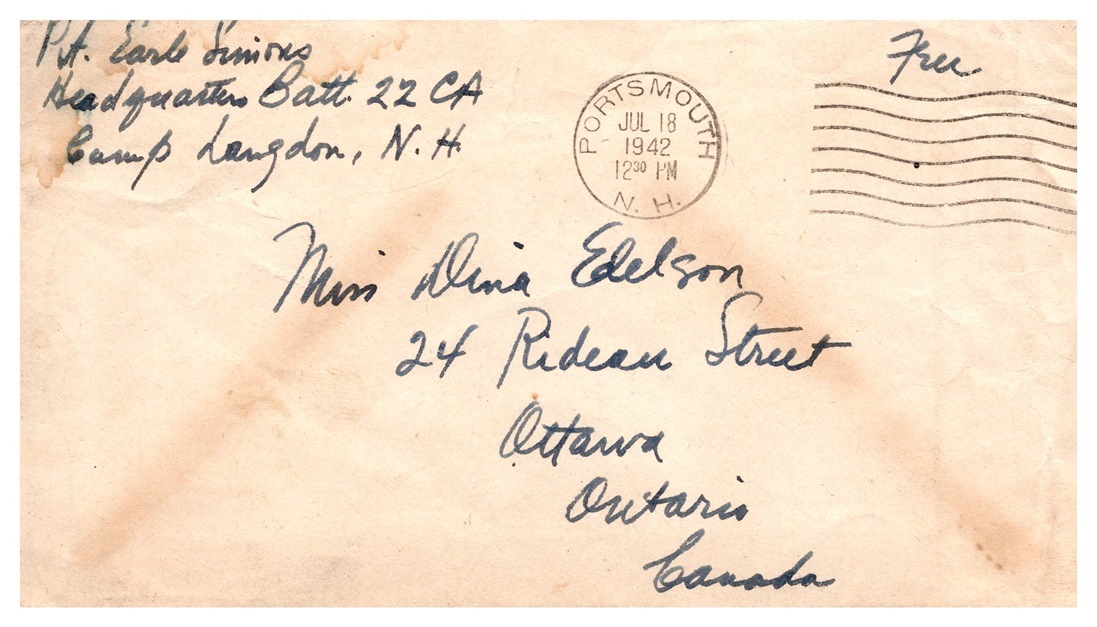 Pvt. Earle Simons
Headquarters Batt. 22 CA
Camp Langdon, N.H.
Free
PORTSMOUTH
JUL 18
1942
12 30 PM
N. H.
Miss Dina Edelson
24 Rideau Street
Ottawa
Ontario
Canada